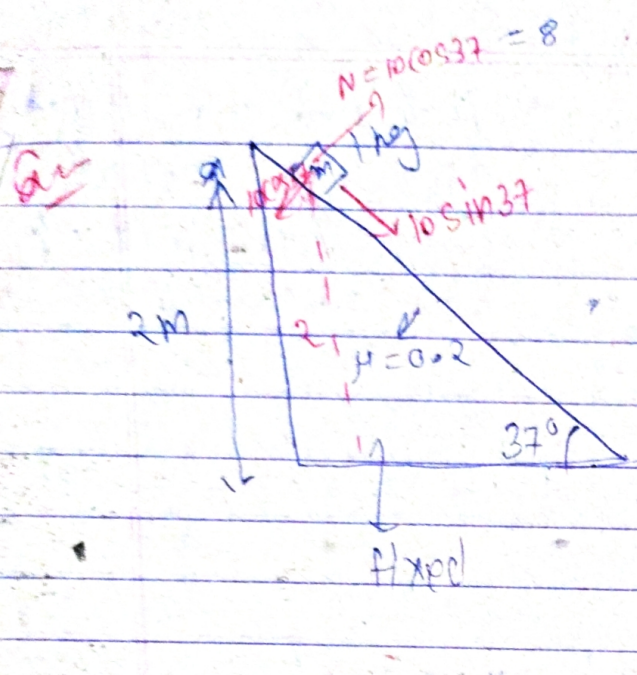 N = 10cos37 = 8
Q
m
1 kg
10sin37
2m
2
μ = 0.2
37°
fixed